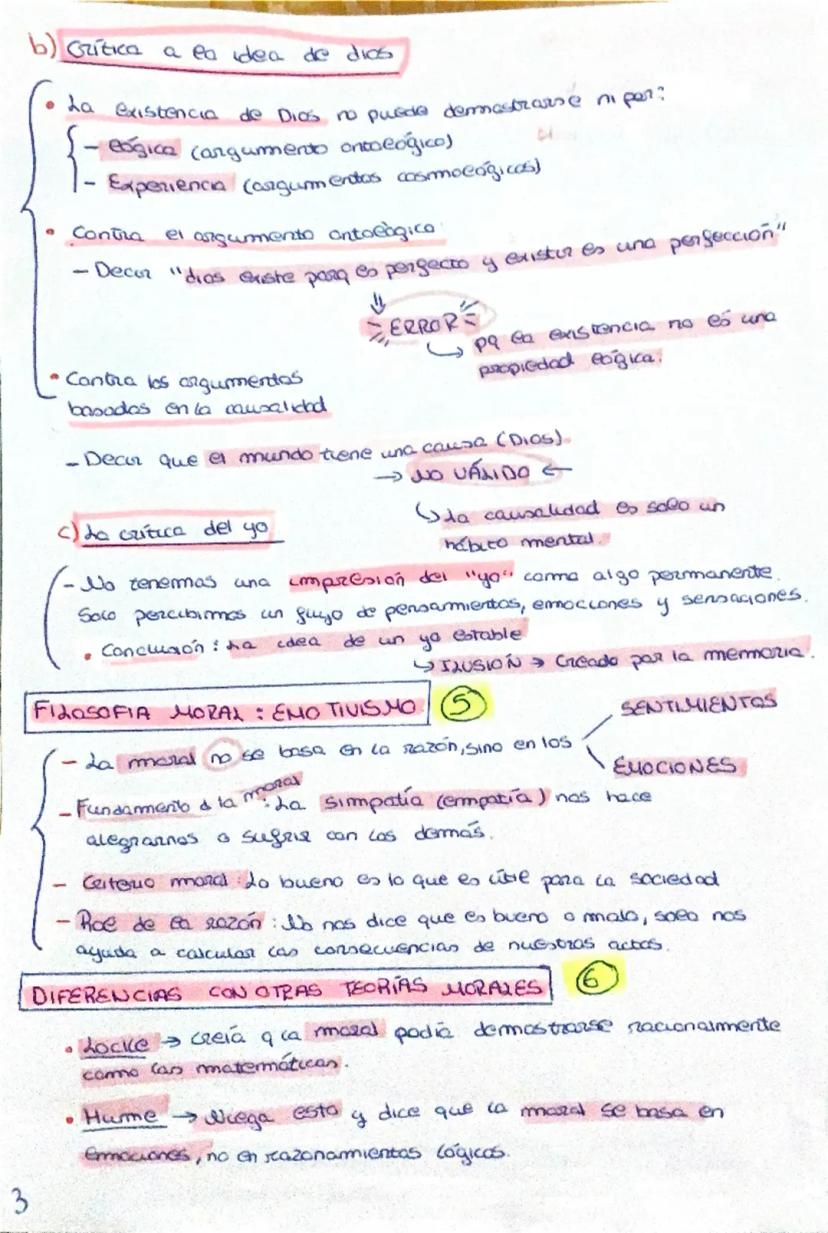 b) Crítica a la idea de dios
• La existencia de Dios no puede demostrarse ni por:
- lógica (argumento ontológico)
- Experiencia (argumentos cosmológicos)
• Contra el argumento ontológico:
- Decir "dios existe porq es perfecto y existir es una perfección"
ERROR
pq la existencia no es una
propiedad lógica.
• Contra los argumentos
basados en la causalidad
- Decir que el mundo tiene una causa (Dios).
→ NO VÁLIDO ←
La causalidad es solo un
hábito mental.
c) La crítica del yo
- No tenemos una impresión del "yo" como algo permanente.
Solo percibimos un flujo de pensamientos, emociones y sensaciones.
• Conclusión: La idea de un yo estable
ILUSIÓN → Creada por la memoria.
FILOSOFIA MORAL: EMOTIVISMO 5
- La moral no se basa en la razón, sino en los
SENTIMIENTOS
EMOCIONES
- Fundamento d la moral: La simpatía (empatía) nos hace
alegrarnos o sufrir con los demás.
- Criterio moral: Lo bueno es lo que es útil para la sociedad
- Rol de la razón: No nos dice que es bueno o malo, solo nos
ayuda a calcular las consecuencias de nuestros actos.
DIFERENCIAS CON OTRAS TEORÍAS MORALES 6
• Locke → creía q la moral podía demostrarse racionalmente
como las matemáticas.
• Hume → Niega esto y dice que la moral se basa en
emociones, no en razonamientos lógicos.
3